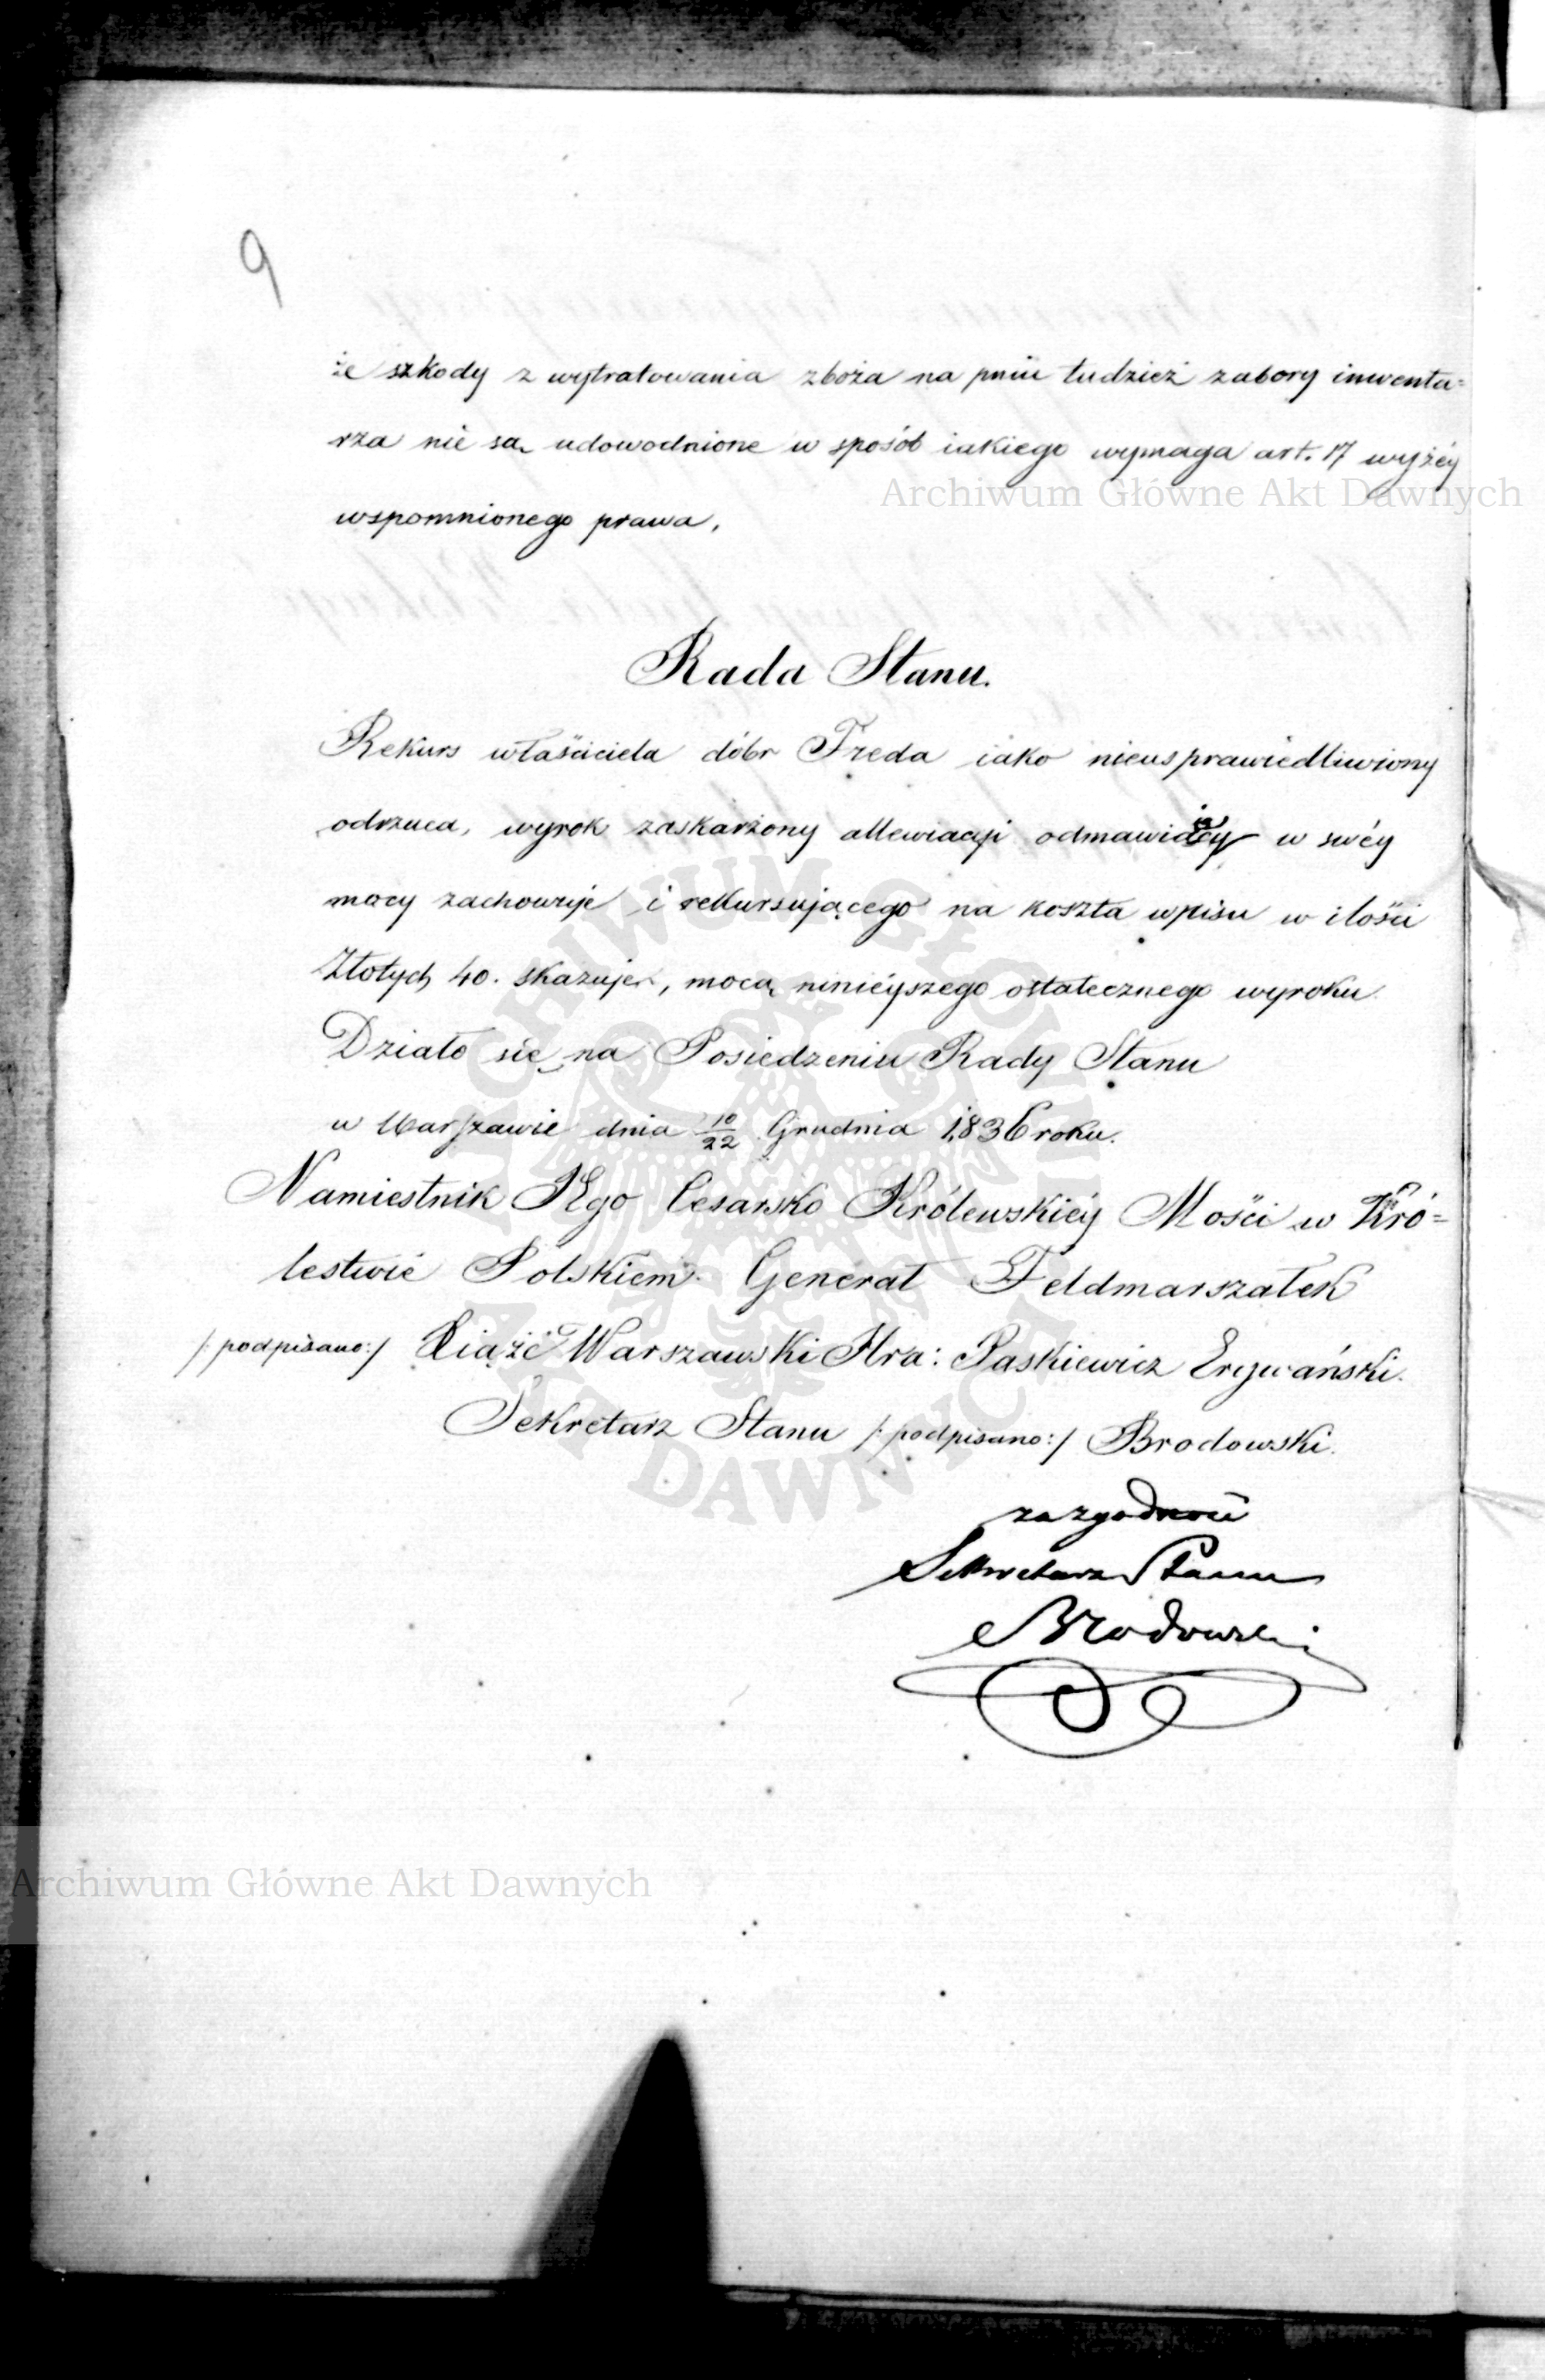 9
że szkody z wytratowania zboża na pniu tudzież zabory inwenta=
rza nie są udowodnione w sposób iakiego wymaga art. 17 wyżéy
Archiwum Główne Akt Dawnych
wspomnionego prawa,
Rada Stanu.
Rekurs właściciela dóbr Freda iako nieusprawiedliwiony
odrzuca, wyrok zaskarżony allewiacyi odmawiaiący w swéy
mocy zachowuje i rekursującego na koszta wpisu w ilości
Złotych 40. skazuje, mocą ninieyszego ostatecznego wyroku.
Działo się na Posiedzeniu Rady Stanu
w Warszawie dnia 10/22 Grudnia 1836 roku.
Namiestnik JEgo Cesarsko Królewskiéy Mości w Kró=
lestwie Polskiem Generał Feldmarszałek
/:podpisano:/ Xiążę Warszawski Hra: Paskiewicz Erywański.
Sekretarz Stanu /:podpisano:/ Brodowski.
za zgodność
Sekretarz Stanu
Brodowski
Archiwum Główne Akt Dawnych
ARCHIWUM GŁÓWNE AKT DAWNYCH